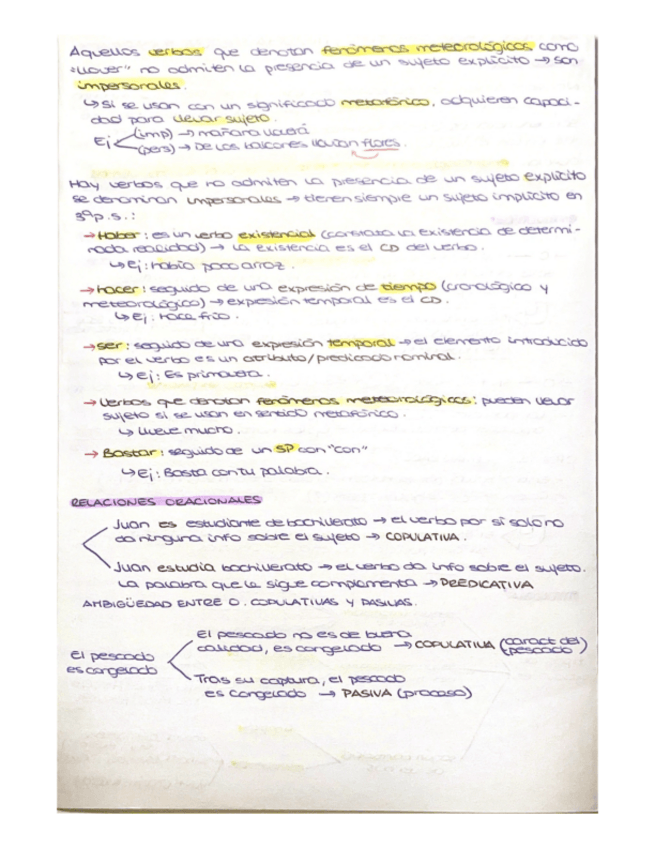 Aquellos verbos que denotan fenómenos meteorológicos como
"llover" no admiten la presencia de un sujeto explícito → son
impersonales.
↳ Si se usan con un significado metafórico, adquieren capaci-
dad para llevar sujeto.
Ej (imp) → mañana lloverá
(pers) → De los balcones llovían flores.
Hay verbos que no admiten la presencia de un sujeto explícito
se denominan impersonales → tienen siempre un sujeto implícito en
3ª p.s.:
→ Haber: es un verbo existencial (constata la existencia de determi-
nada realidad) → la existencia es el CD del verbo.
↳ Ej: había poco arroz.
→ hacer: seguido de una expresión de tiempo (cronológico y
meteorológico) → expesión temporal es el CD.
↳ Ej: hace frío.
→ ser: seguido de una expesión temporal → el elemento introducido
por el verbo es un atributo/predicado nominal.
↳ ej: Es primavera.
→ Verbos que denotan fenómenos meteorológicos: pueden llevar
sujeto si se usan en sentido metafórico.
↳ llueve mucho.
→ Bastar: seguido de un SP con "con"
↳ Ej: Basta con tu palabra.
RELACIONES ORACIONALES
Juan es estudiante de bachillerato → el verbo por si solo no
da ninguna info sobre el sujeto → COPULATIVA.
Juan estudia bachillerato → el verbo da info sobre el sujeto.
La palabra que le sigue complementa → PREDICATIVA
AMBIGÜEDAD ENTRE O. COPULATIVAS Y PASIVAS.
El pescado no es de buena
calidad, es congelado → COPULATIVA (caract del
pescado)
El pescado
es congelado
Tras su captura, el pescado
es congelado → PASIVA (proceso)